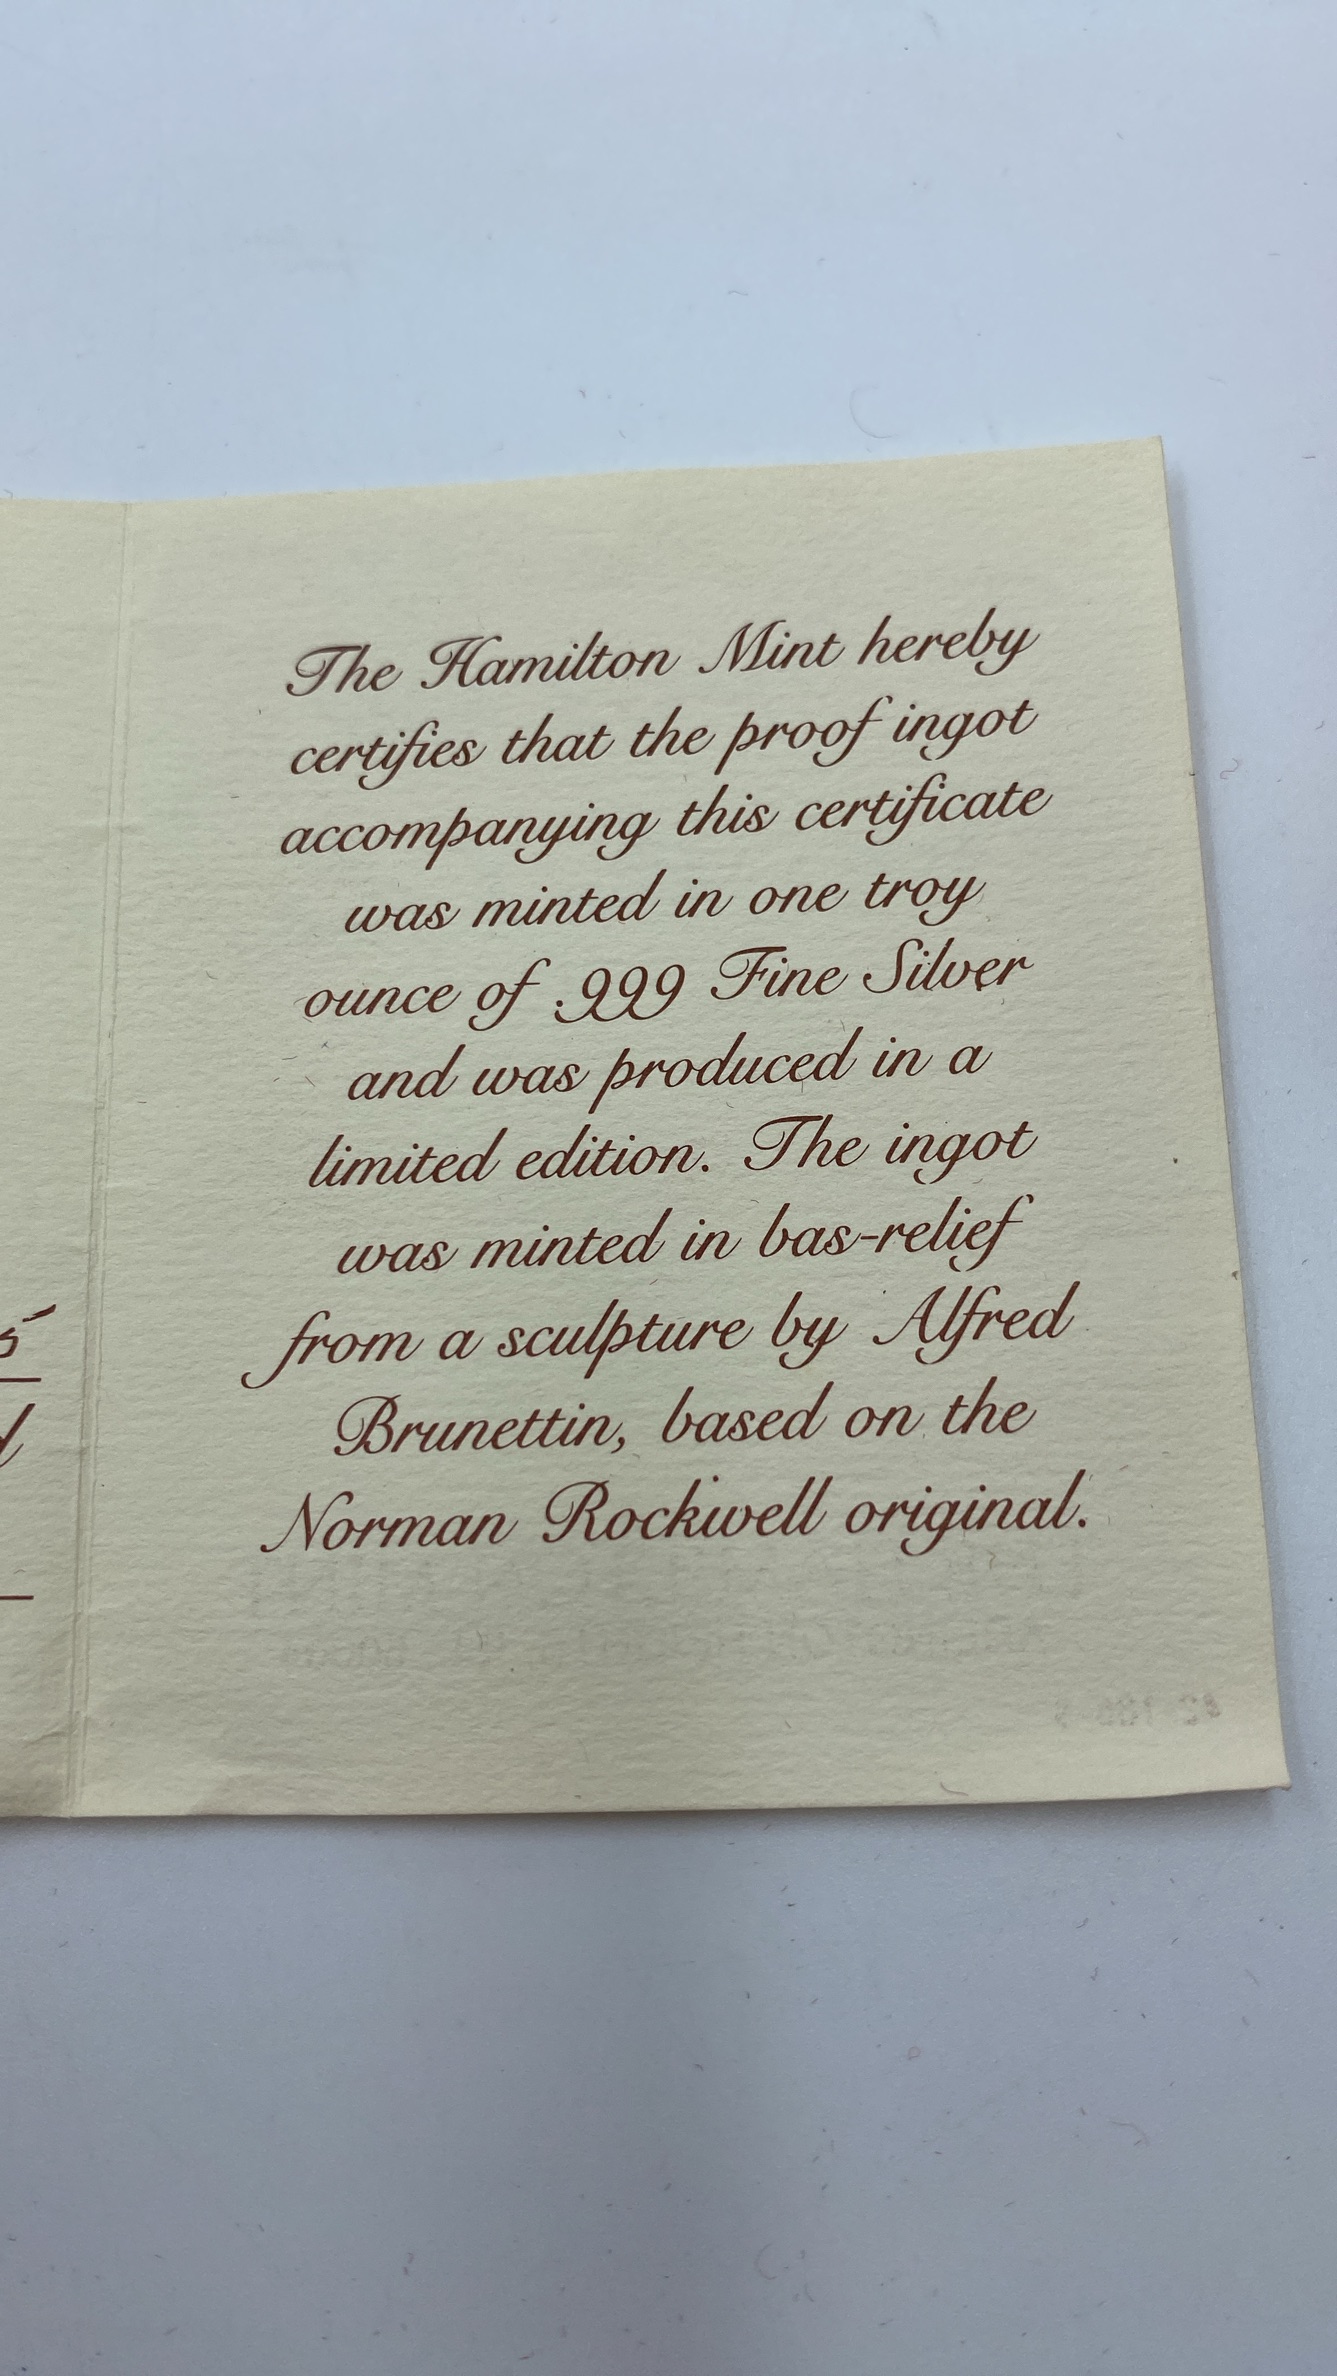 The Hamilton Mint hereby
certifies that the proof ingot
accompanying this certificate
was minted in one troy
ounce of .999 Fine Silver
and was produced in a
limited edition. The ingot
was minted in bas-relief
from a sculpture by Alfred
Brunettin, based on the
Norman Rockwell original.